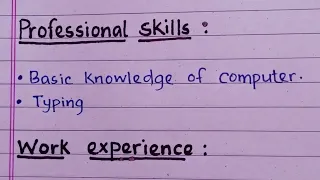 Professional skills :
• Basic knowledge of computer.
• Typing
Work experience :